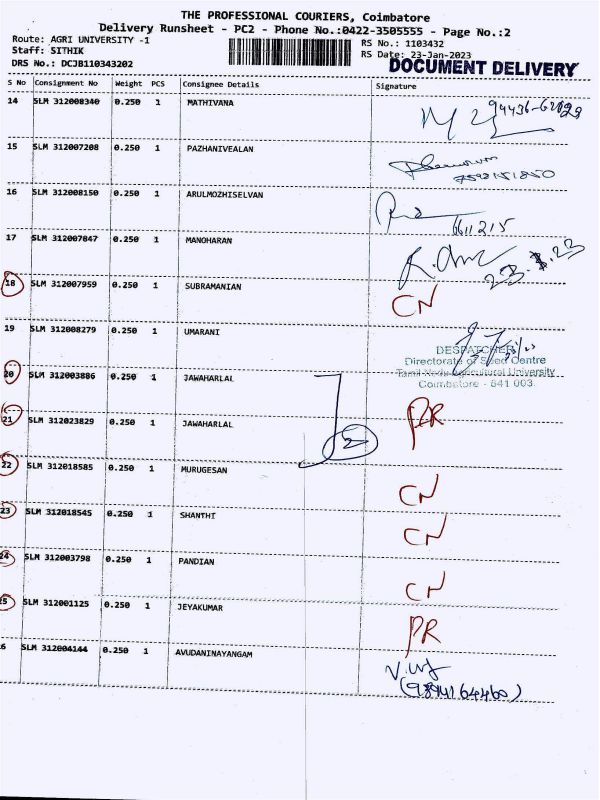 THE PROFESSIONAL COURIERS, Coimbatore
Delivery Runsheet - PC2 - Phone No.:0422-3505555 - Page No.:2
Route: AGRI UNIVERSITY -1 RS No.: 1103432
Staff: SITHIK RS Date: 23-Jan-2023
DRS No.: DCJB110343202 DOCUMENT DELIVERY
S No Consignment No Weight PCS Consignee Details Signature
14 SLM 312008340 0.250 1 MATHIVANA
15 SLM 312007208 0.250 1 PAZHANIVEALAN
16 SLM 312008150 0.250 1 ARULMOZHISELVAN
6611215
17 SLM 312007847 0.250 1 MANOHARAN
18 SLM 312007959 0.250 1 SUBRAMANIAN CN
19 SLM 312008279 0.250 1 UMARANI
DESPATCHER
Directorate of Seed Centre
Tamil Nadu Agricultural University
Coimbatore - 641 003.
20 SLM 312003886 0.250 1 JAWAHARLAL
21 SLM 312023829 0.250 1 JAWAHARLAL 2 PR
22 SLM 312018585 0.250 1 MURUGESAN CN
23 SLM 312018545 0.250 1 SHANTHI CN
24 SLM 312003798 0.250 1 PANDIAN CN
25 SLM 312001125 0.250 1 JEYAKUMAR PR
6 SLM 312004144 0.250 1 AVUDANINAYANGAM